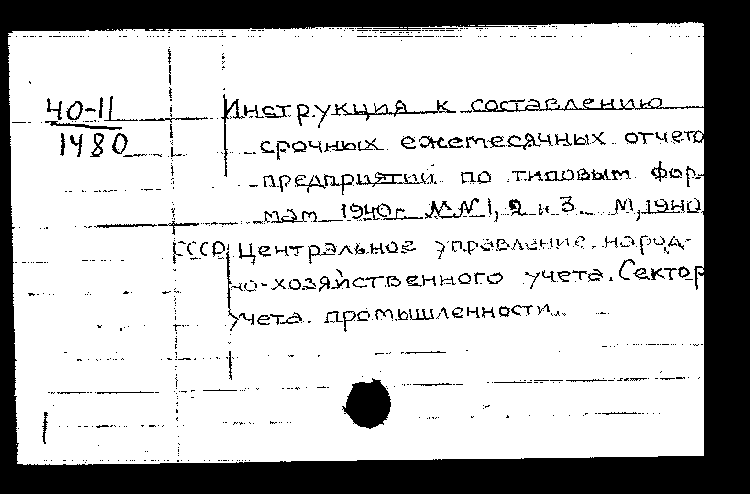 40-11
1480
Инструкция к составлению
срочных ежемесячных отчето
предприятий по типовым фор-
мам 1940г. №№1, 2 и 3. М, 1940
СССР. Центральное управление народ-
но-хозяйственного учета. Сектор
учета промышленности.